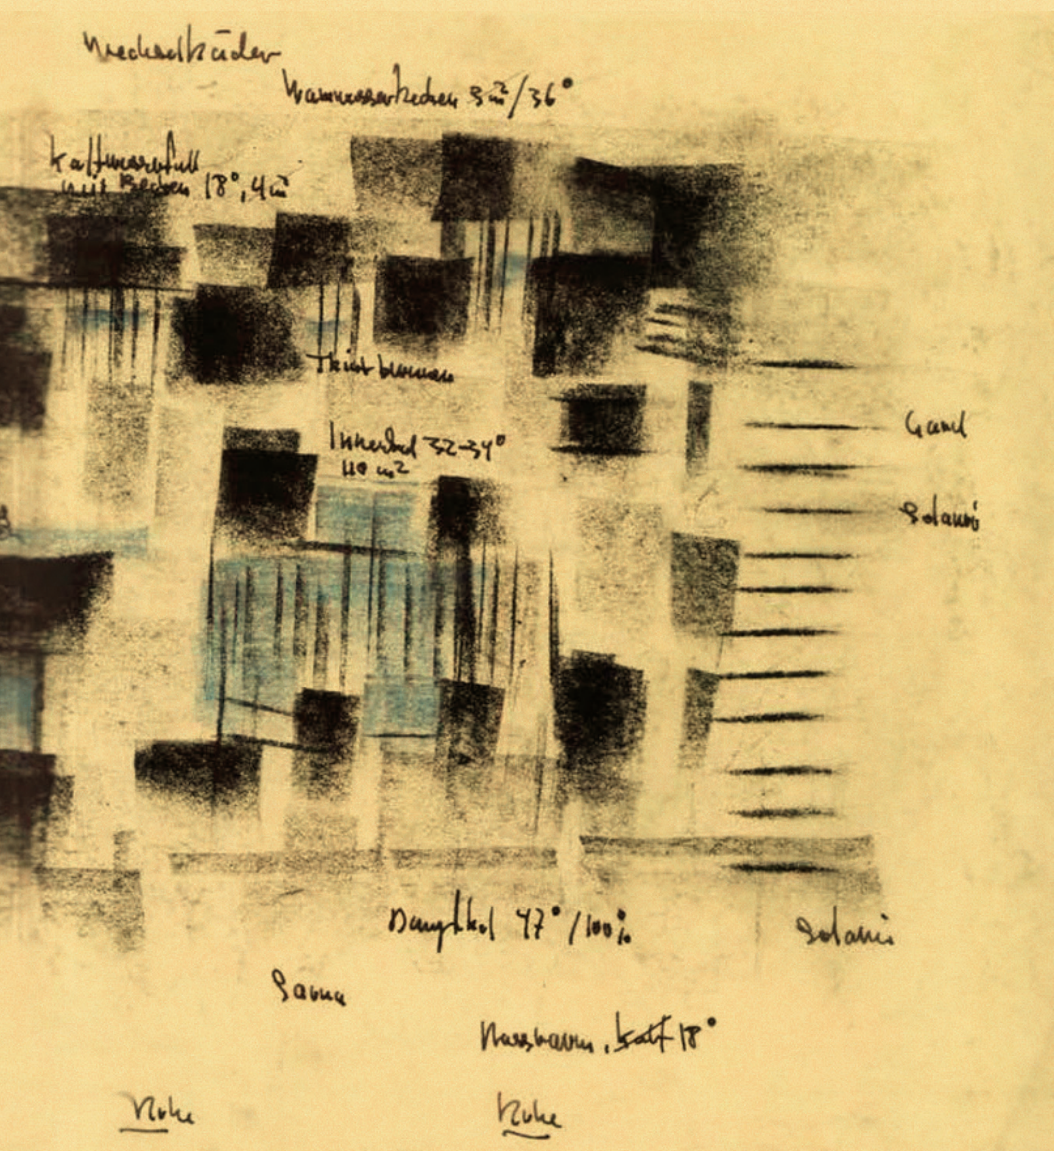 Wechselbäder
Warmwasserbecken 3 m²/36°
Kaltwasserfall
mit Becken 18°, 4 m²
Trinkbrunnen
Innenbad 32-34°
110 m²
Solarium
Dampfbad 47°/100%
Solarium
Sauna
Nassraum, kalt 18°
Ruhe
Ruhe